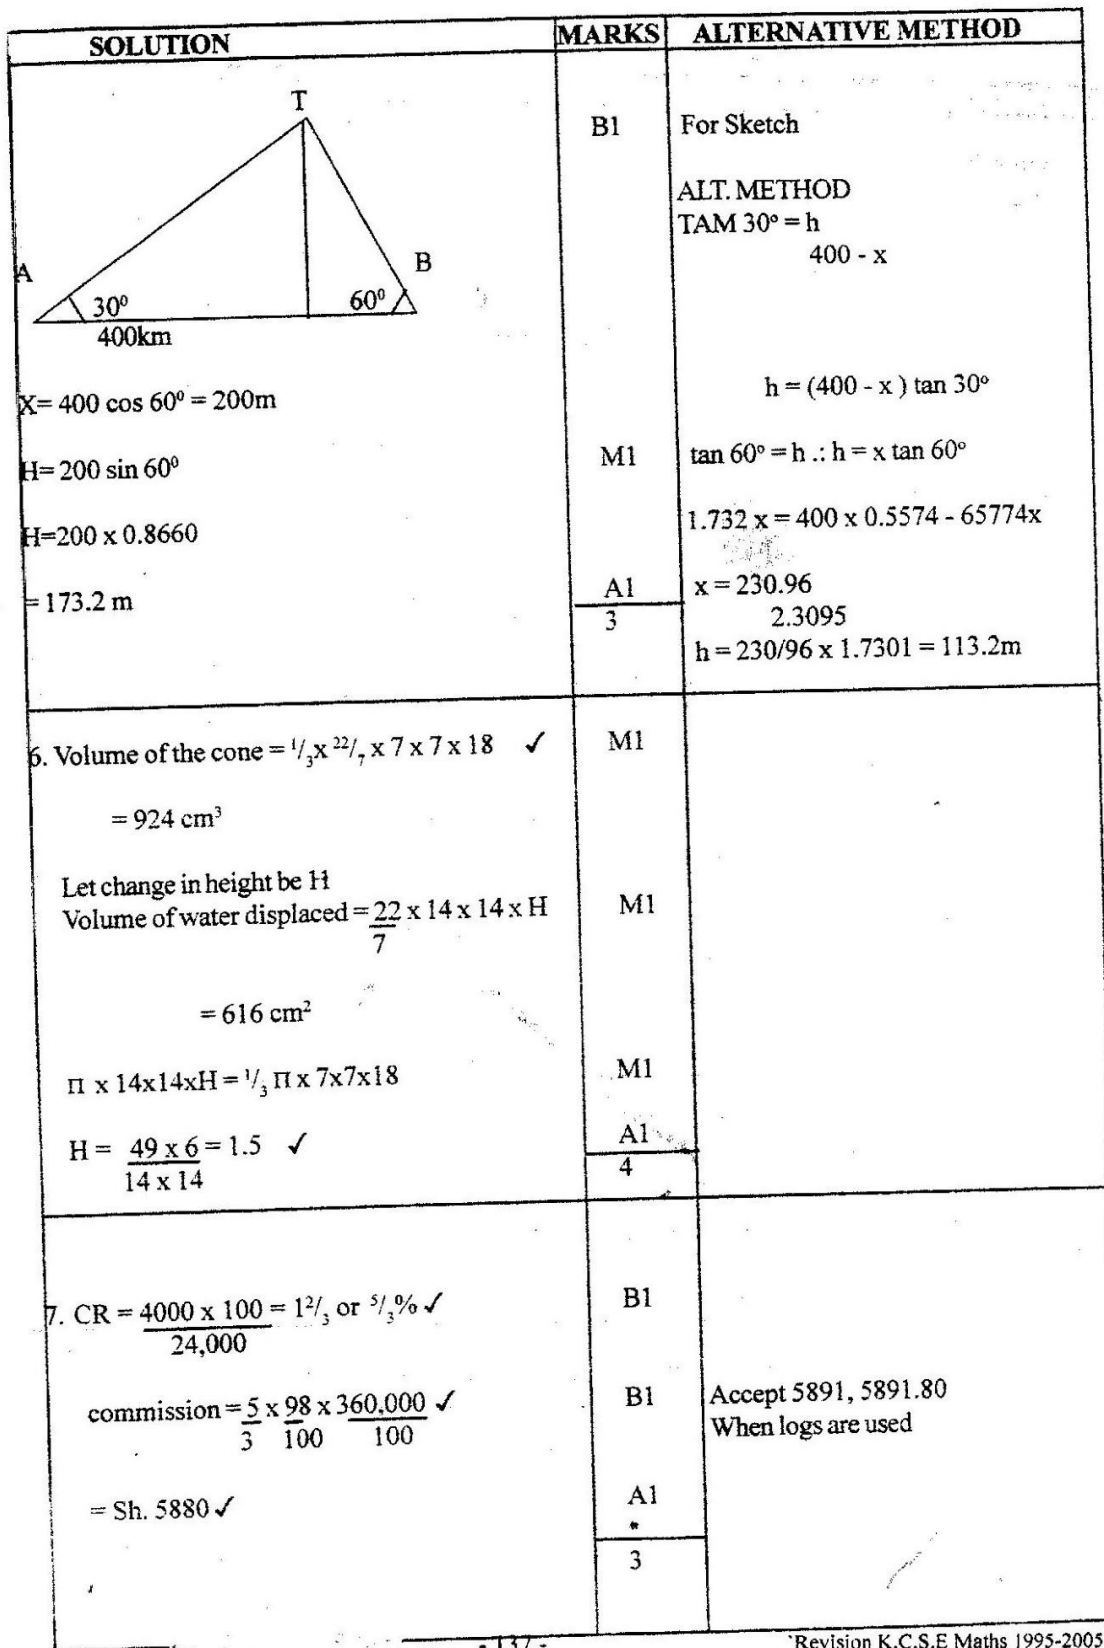 SOLUTION MARKS ALTERNATIVE METHOD
T
B1 For Sketch
ALT. METHOD
TAM 30° = h
400 - x
A B
30⁰ 60⁰
400km
h = (400 - x ) tan 30°
X= 400 cos 60⁰ = 200m
H= 200 sin 60⁰ M1 tan 60° = h .: h = x tan 60°
H=200 x 0.8660 1.732 x = 400 x 0.5574 - 65774x
= 173.2 m A1 x = 230.96
3 2.3095
h = 230/96 x 1.7301 = 113.2m
6. Volume of the cone = ¹/₃x ²²/₇ x 7 x 7 x 18 ✓ M1
= 924 cm³
Let change in height be H
Volume of water displaced = 22 x 14 x 14 x H M1
7
= 616 cm²
Π x 14x14xH = ¹/₃ Π x 7x7x18 M1
H = 49 x 6 = 1.5 ✓ A1
14 x 14 4
7. CR = 4000 x 100 = 1²/₃ or ⁵/₃% ✓ B1
24,000
commission = 5 x 98 x 360,000 ✓ B1 Accept 5891, 5891.80
3 100 100 When logs are used
= Sh. 5880 ✓ A1
3
- 137 - `Revision K.C.S.E Maths 1995-2005